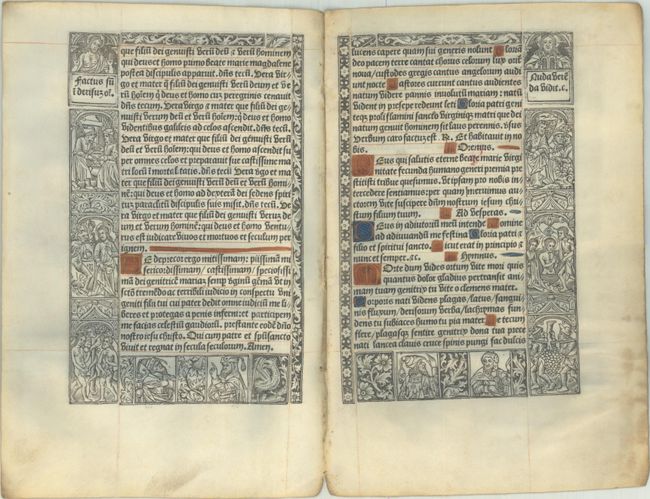 Factus sũ
ĩ derisuz oĩ.
que filiũ dei genuisti Verũ deũ & Verũ hominem
qui deus et homo primo beate marie magdalene
postea discipulis apparuit. dñs tecũ. Vera Vir-
go et mater q̃ filiũ dei genuisti Verũ deum et Ve
rũ hoĩem q̃ deus et homo cuz peregrinis cenauit
dñs tecum. Vera Virgo & mater que filiũ dei ge-
nuisti Verum deũ & Verũ hoĩem: q̃ deus et homo
Videntibus galileis ad celos ascendit. dñs tecũ.
Vera Virgo et mater que filiũ dei genuisti Verũ
deũ & Verũ hoĩem: qui deus et homo ascendit su
per omnes celos et preparauit tue castissime ma
tri locũ
go et ma
ter que filiũ dei genuisti Verũ deũ et Verũ homi-
nẽ: qui deus et homo ad dexterã dei sedens spiri-
tuz paraclitũ discipulis suis misit. dñs tecũ. Ve
ra Virgo et mater que filiũ dei genuisti Veruz de
um et Verum hominẽ: qui deus et homo Ventu-
rus est iudicare Viuos et mortuos et seculum per
ignem.
E deprecor ergo mitissimam: piissimã mi
sericordissimam/ castissimam/ speciosissi
mã dei genitricẽ mariaz semp Virginẽ
ctõ tremẽdo ac terribili iudicio in conspectu Vni
geniti filii tui cui pater dedit omne iudiciũ me li
beres et protegas a penis inferni: et participem
me facias celestiũ gaudiorũ. prestante eodẽ dño
nostro iesu christo. Qui cum patre et spũsancto
Viuit et regnat in secula seculorum. Amen.
lucens capere quam sui generis nosunt Gloriã
deo pacem terre cantat chorus celorum lux orit
noua/ custodes gregis cantus angelorum audi
unt nocte Pastores currunt cantus audientes
natum Videre pannis inuolutũ mariam: natũ
Vident in presepe redeunt leti Gloria patri geni
teqz proli flamini sancto Virginiqz matri que dei
natum genuit hominem sit laus perennis. Vsus
Verbum caro factus est. R. Et habitauit in no
bis. Oremus.
Deus qui salutis eterne beate marie Virgi
nitate fecunda humano generi premia pre
stitisti tribue quesumus. Vt ipsam pro nobis in-
tercedere sentiamus: per quam meruimus au-
ctorem Vite suscipere dñm nostrum iesum chri-
stum filium tuum. Ad Vesperas.
Deus in adiutoriũ meũ intende Domine
ad adiuuandũ me festina Gloria patri &
filio et spiritui sancto. Sicut erat in principio &
nunc et semper. &c. Hymnus.
Corporis nati Videns plagas/ latus/ sangui-
nis fluxum/ derisorum Verba/ lachrymas fun
dens tu subiacens humo tu pia mater. Te tecum
flere/ plagasqz sentire genitrix dona tua pre
nati lancea clauis cruce spinis pungi fac dulcis
Nuda Verẽ
da Vidit. c.